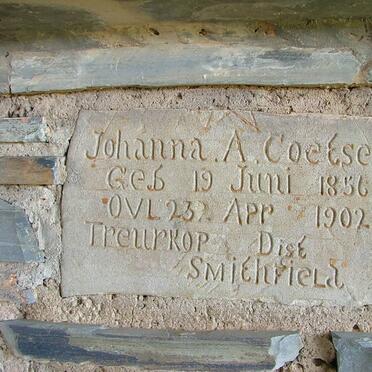 Johanna. A. Coetse
Geb 19 Juni 1856
OVL 23. APR 1902
Treurkop Dist
Smithfield